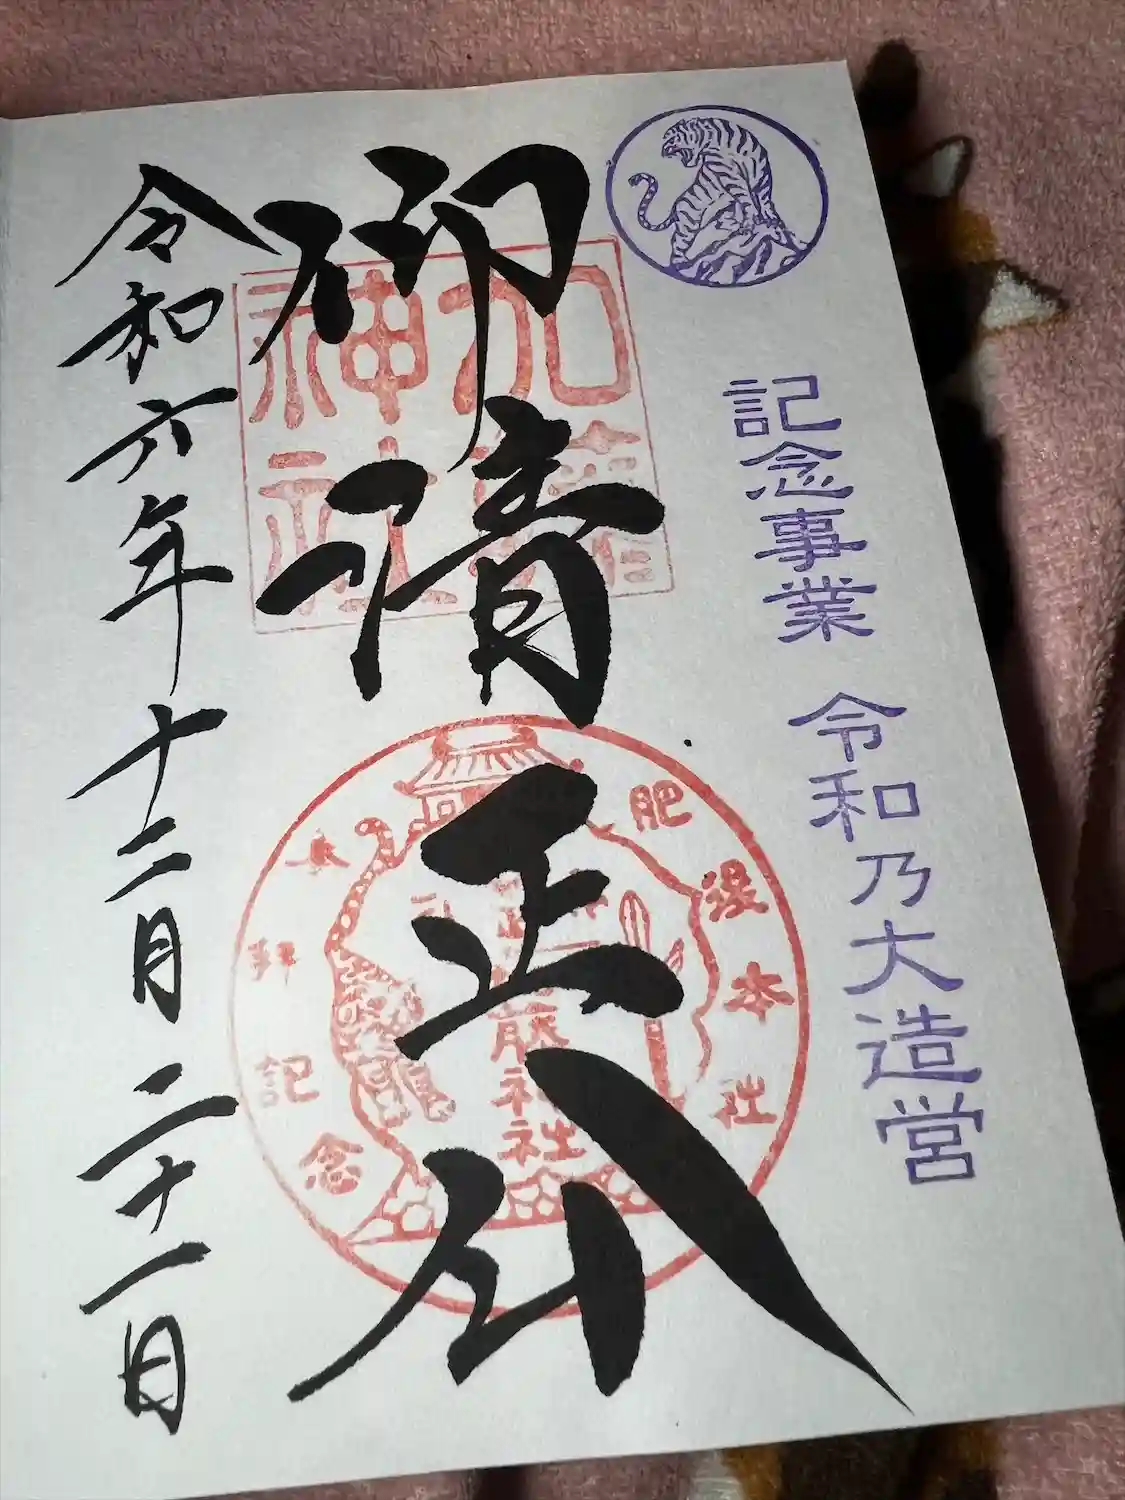 記念事業 令和乃大造営
御清正公
加藤神社
肥後本社
参拝記念
加藤神社
令和六年十二月二十一日